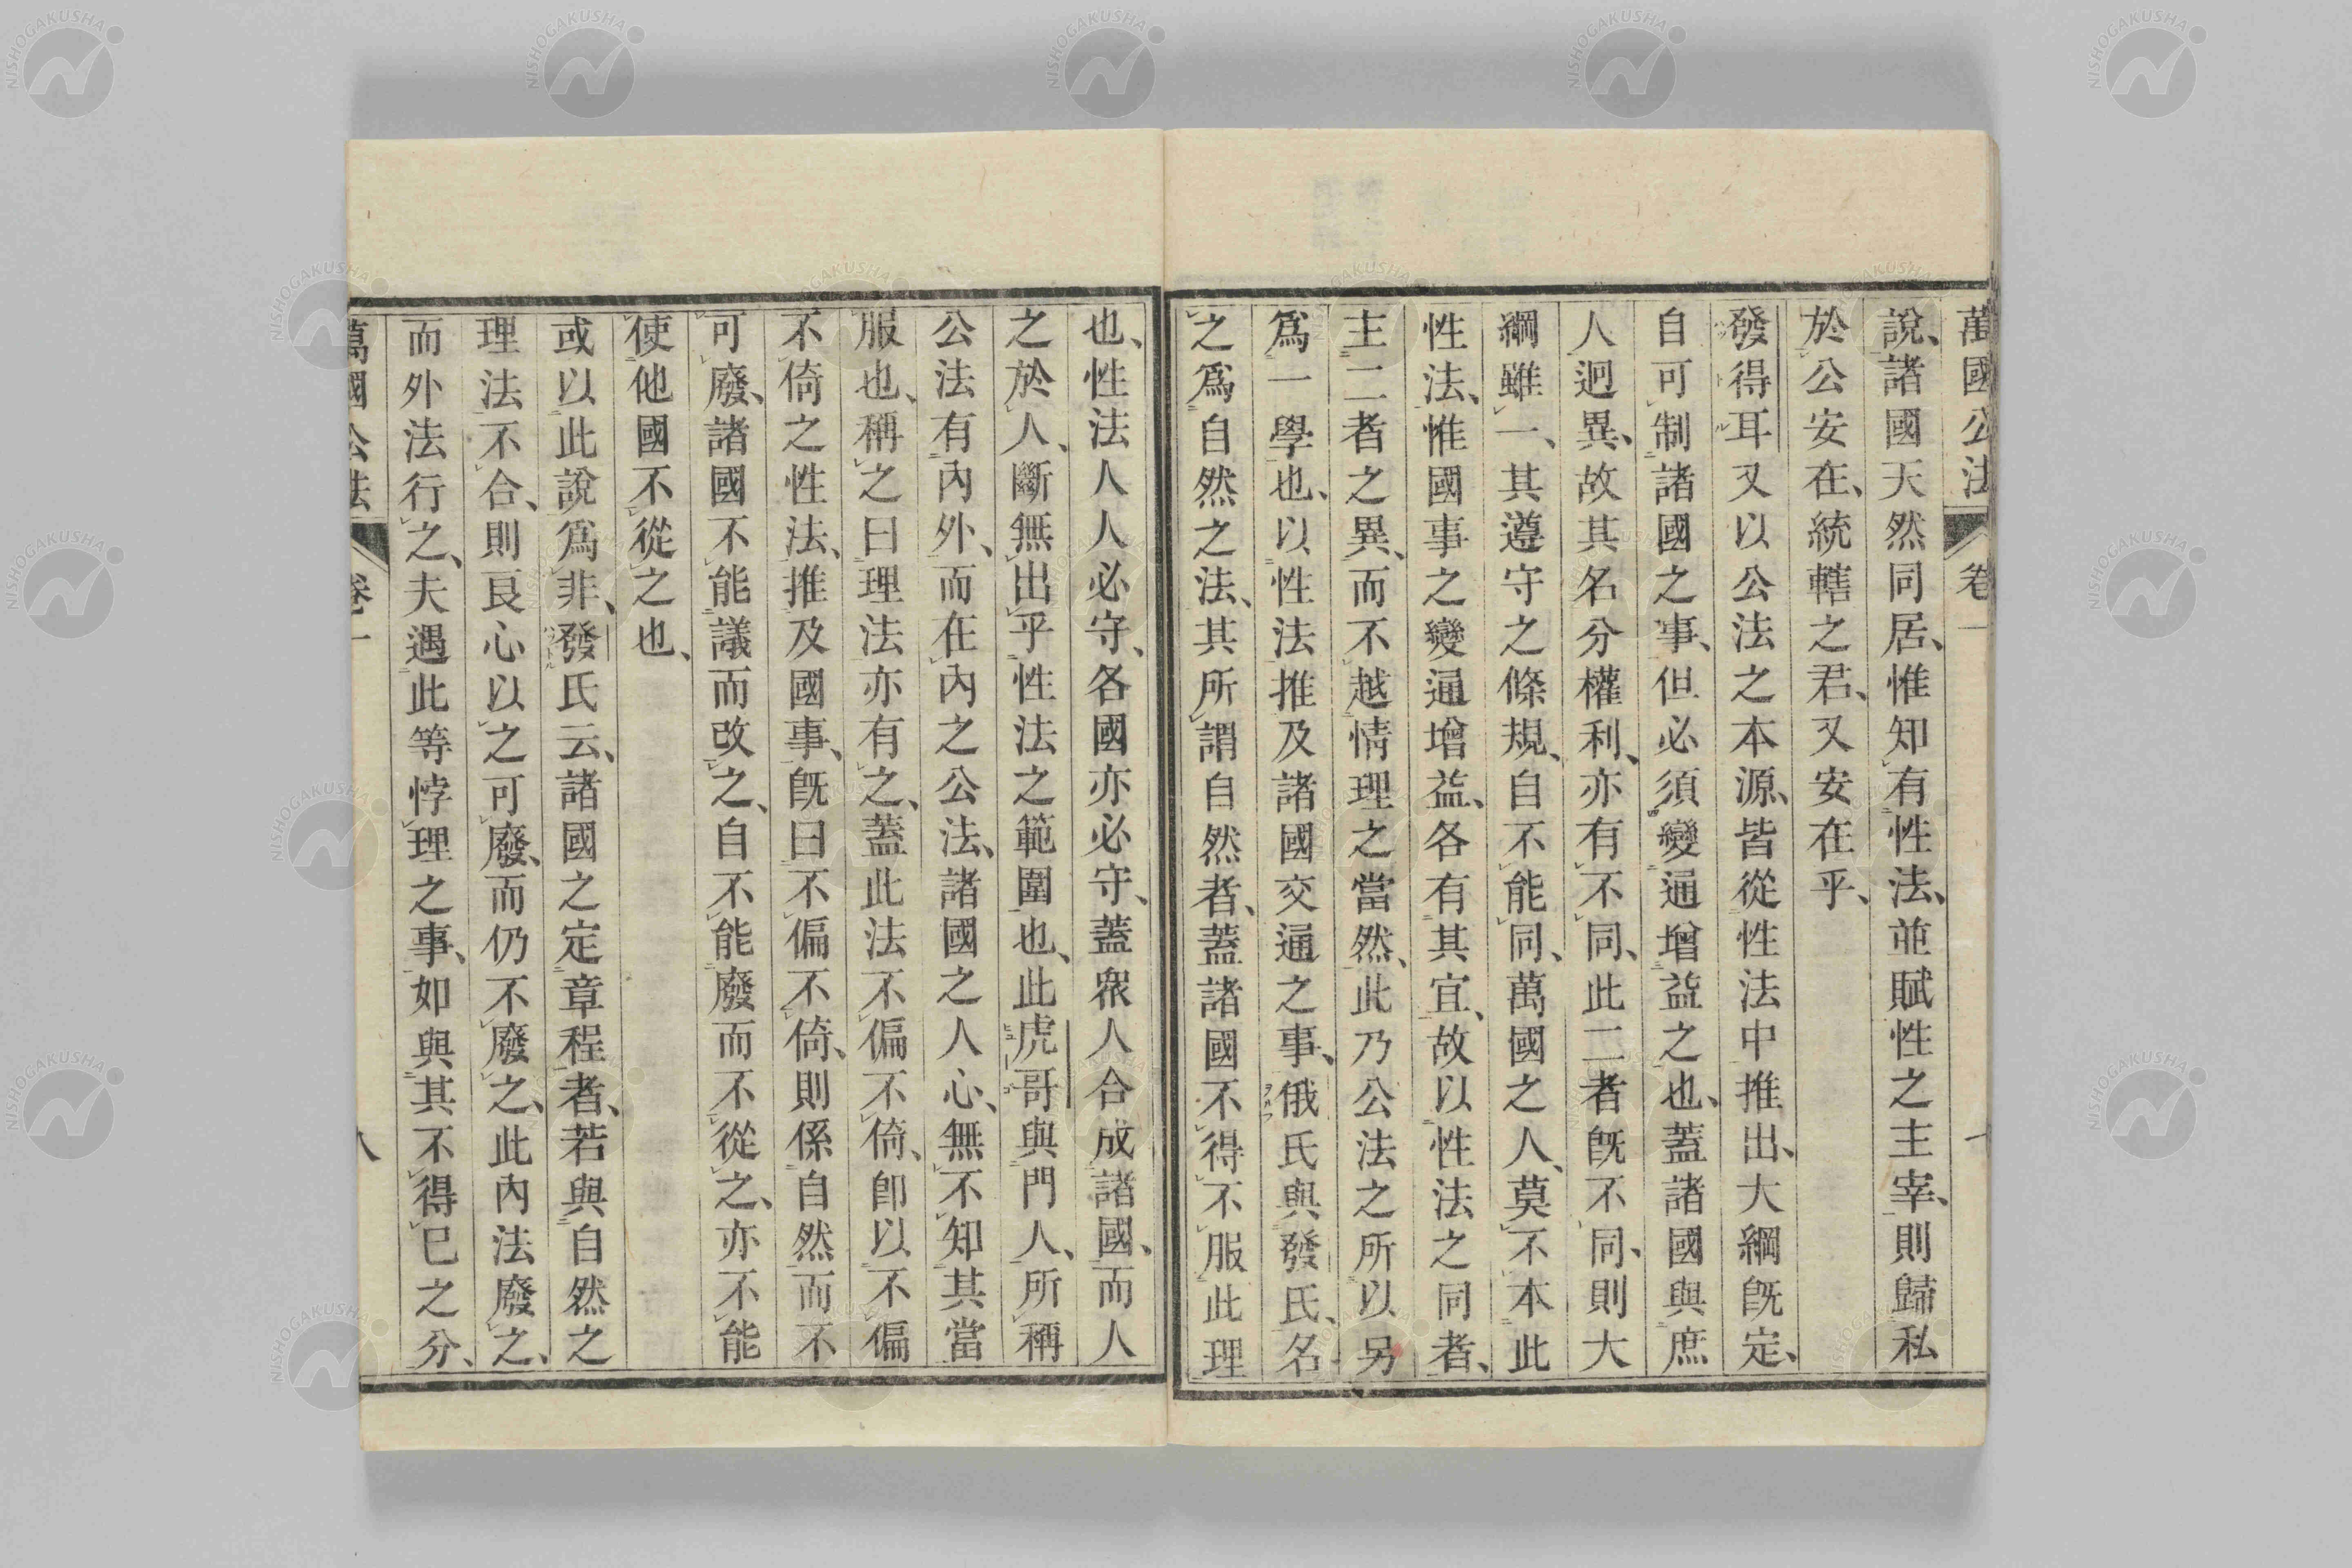 萬國公法 卷一
說、諸國天然同居、惟知有性法、並賦性之主宰、則歸私
於公安在、統轄之君、又安在乎、
發得耳又以公法之本源、皆從性法中推出、大綱旣定、
自可制諸國之事、但必須變通增益之也、蓋諸國與庶
人迥異、故其名分權利、亦有不同、此二者旣不同、則大
綱雖一、其遵守之條規、自不能同、萬國之人、莫不本此
性法、惟國事之變通增益、各有其宜、故以性法之同者、
主二者之異、而不越情理之當然、此乃公法之所以另
爲一學也、以性法推及諸國交通之事、俄氏與發氏、名
之爲自然之法、其所謂自然者、蓋諸國不得不服此理
也、性法人人必守、各國亦必守、蓋衆人合成諸國、而人
之於人、斷無出乎性法之範圍也、此虎哥與門人、所稱
公法有內外、而在內之公法、諸國之人心、無不知其當
服也、稱之曰理法亦有之、蓋此法不偏不倚、卽以不偏
不倚之性法、推及國事、旣曰不偏不倚、則係自然而不
可廢、諸國不能議而改之、自不能廢而不從之、亦不能
使他國不從之也、
或以此說爲非、發氏云、諸國之定章程者、若與自然之
理法不合、則良心以之可廢、而仍不廢之、此內法廢之、
而外法行之、夫遇此等悖理之事、如與其不得已之分、
萬國公法 卷一 八